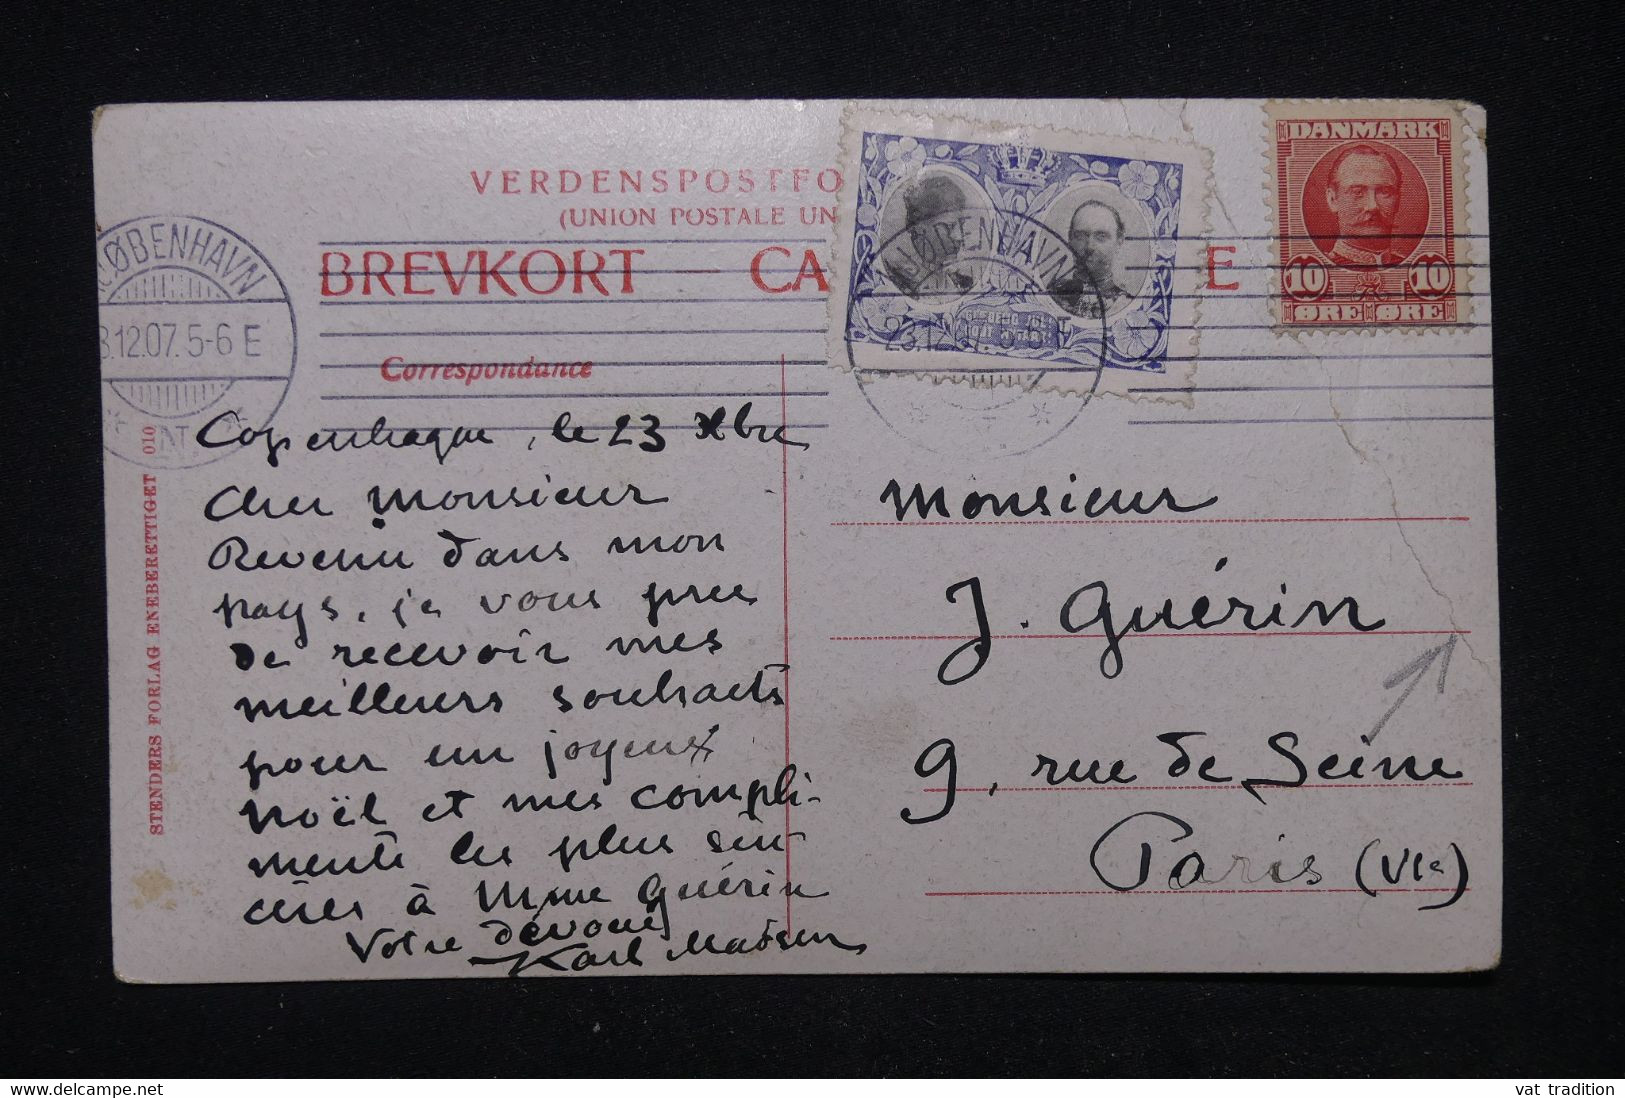 VERDENSPOSTFO
(UNION POSTALE UN
BREVKORT — CA E
Correspondance
KJØBENHAVN
3.12.07. 5-6 E
KJØBENHAVN
23.12.07. 5-6 E
DANMARK
10 10
ØRE ØRE
STENDERS FORLAG ENEBERETTIGET 010
Copenhague, le 23 Xbre
Cher Monsieur
Revenu dans mon
pays, je vous prie
de recevoir mes
meilleurs souhaits
pour un joyeux
noël et mes compli-
ments les plus sin-
cères à Mme Guérin
Votre dévoué
Karl Madsen
Monsieur
J. Guérin
9, rue de Seine
Paris (VIe)
www.delcampe.net
vat tradition